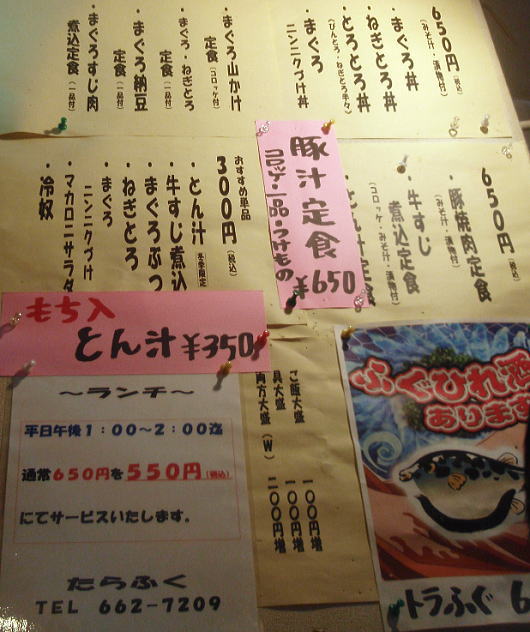 650円(税込)
(みそ汁・漬物付)
・まぐろ丼
・ねぎとろ丼
・とろとろ丼
(びんとろ・ねぎとろ半々)
・まぐろ
ニンニクづけ丼
・まぐろ山かけ
定食(コロッケ付)
・まぐろ・ねぎとろ
定食(一品付)
・まぐろ納豆
定食(一品付)
・まぐろすじ肉
煮込定食(一品付)
650円(税込)
・豚焼肉定食
(みそ汁・漬物付)
・牛すじ
煮込定食
(コロッケ・みそ汁・漬物付)
豚汁定食
コロッケ・一品・つけもの
¥650
おすすめ単品
300円(税込)
・とん汁 冬季限定
・牛すじ煮込
・まぐろぶつ
・ねぎとろ
・まぐろ
ニンニクづけ
・マカロニサラダ
・冷奴
もち入
とん汁¥350
ご飯大盛 一〇〇円増
具大盛 一〇〇円増
両方大盛(W) 二〇〇円増
~ランチ~
平日午後1:00~2:00迄
通常650円を550円(税込)
にてサービスいたします。
たらふく
TEL 662-7209
ふぐひれ酒
あります
トラふぐ 6